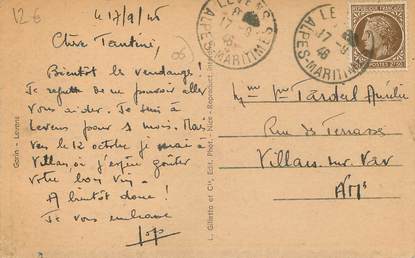 12€
le 17/9/46
Chère Tantine,
Bientôt les vendanges !
Je regrette de ne pouvoir aller
vous aider. Je suis à
Levens pour 1 mois. Mais
vers le 12 octobre je serai à
Villars, où j'espère goûter
votre bon vin.
A bientôt donc !
Je vous embrasse
Gorin - Levens
L. Gilletta et Cie, Edit. Phot. - Nice
LEVENS
17-9
46
ALPES-MARITIMES
LEVENS
17-9
46
ALPES-MARITIMES
POSTES 2F50
Tardeil Aurélie
Rue des Terrasses
Villars sur Var
A Mmes